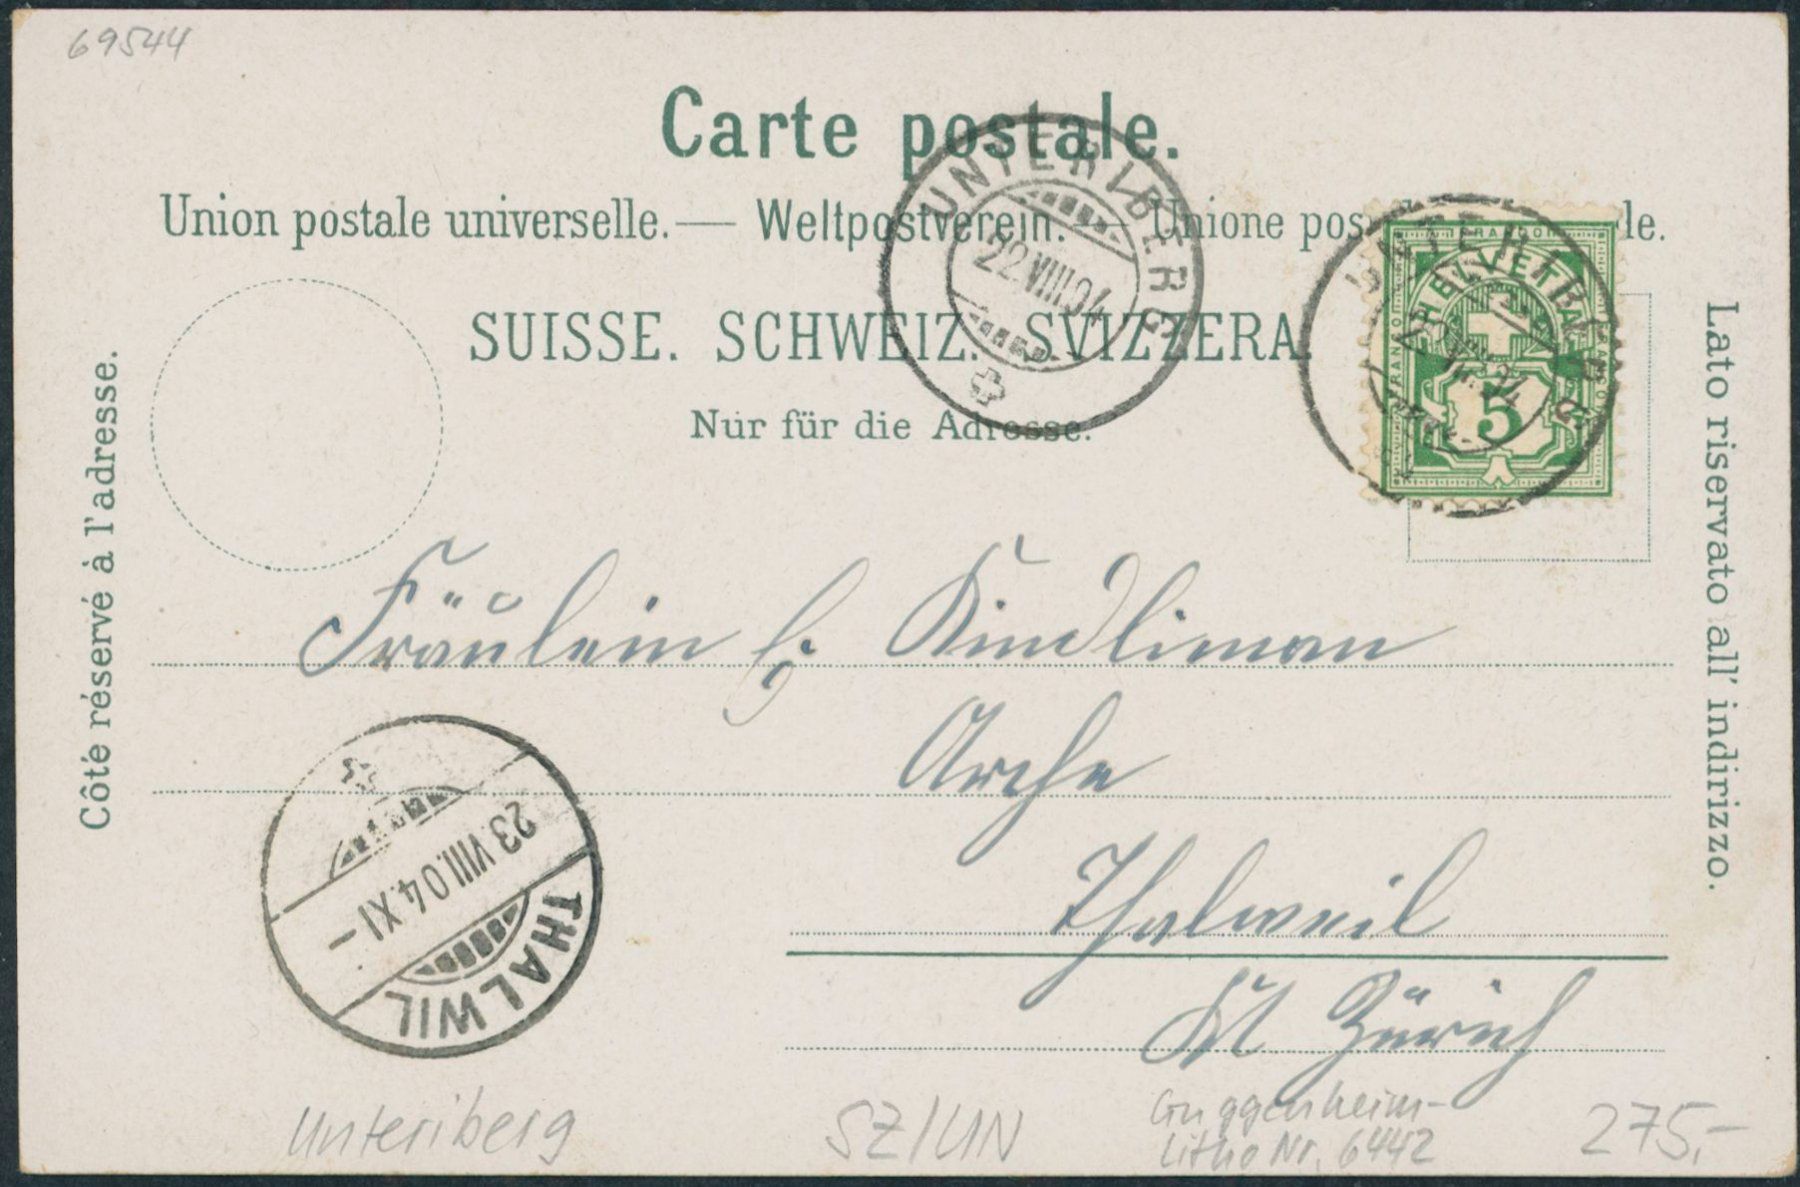 69544
Carte postale.
Union postale universelle. — Weltpostverein. — Unione pos le.
SUISSE. SCHWEIZ. SVIZZERA.
Nur für die Adresse.
Côté réservé à l'adresse.
Lato riservato all' indirizzo.
UNTERIBERG
22.VIII.04
UNTERIBERG
FRANCO
HELVETIA
5
Fräulein H. Kindliman
Arche
Thalweil
Kt Zürich
23.VIII.04.XI
THALWIL
Unteriberg
SZ/UN
Guggenheim-
Litho Nr. 6442
275,-